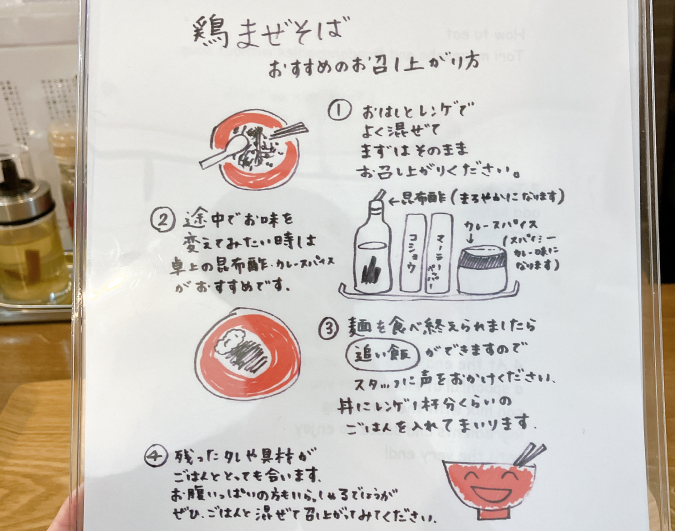 鶏まぜそば
おすすめのお召し上がり方
① おはしとレンゲで
よく混ぜて
まずはそのまま
お召し上がりください。
② 途中でお味を
変えてみたい時は
卓上の昆布酢・カレースパイス
がおすすめです。
←昆布酢(まろやかになります)
コショウ
マーラーペッパー
カレースパイス
(スパイシー
カレー味に
なります)
③ 麺を食べ終えられましたら
追い飯 ができますので
スタッフに声をおかけください。
丼にレンゲ1杯分くらいの
ごはんを入れてまいります。
④ 残ったタレや具材が
ごはんととっても合います。
お腹いっぱいの方もいらっしゃるでしょうが
ぜひ、ごはんと混ぜて召し上がってみてください。
How to eat